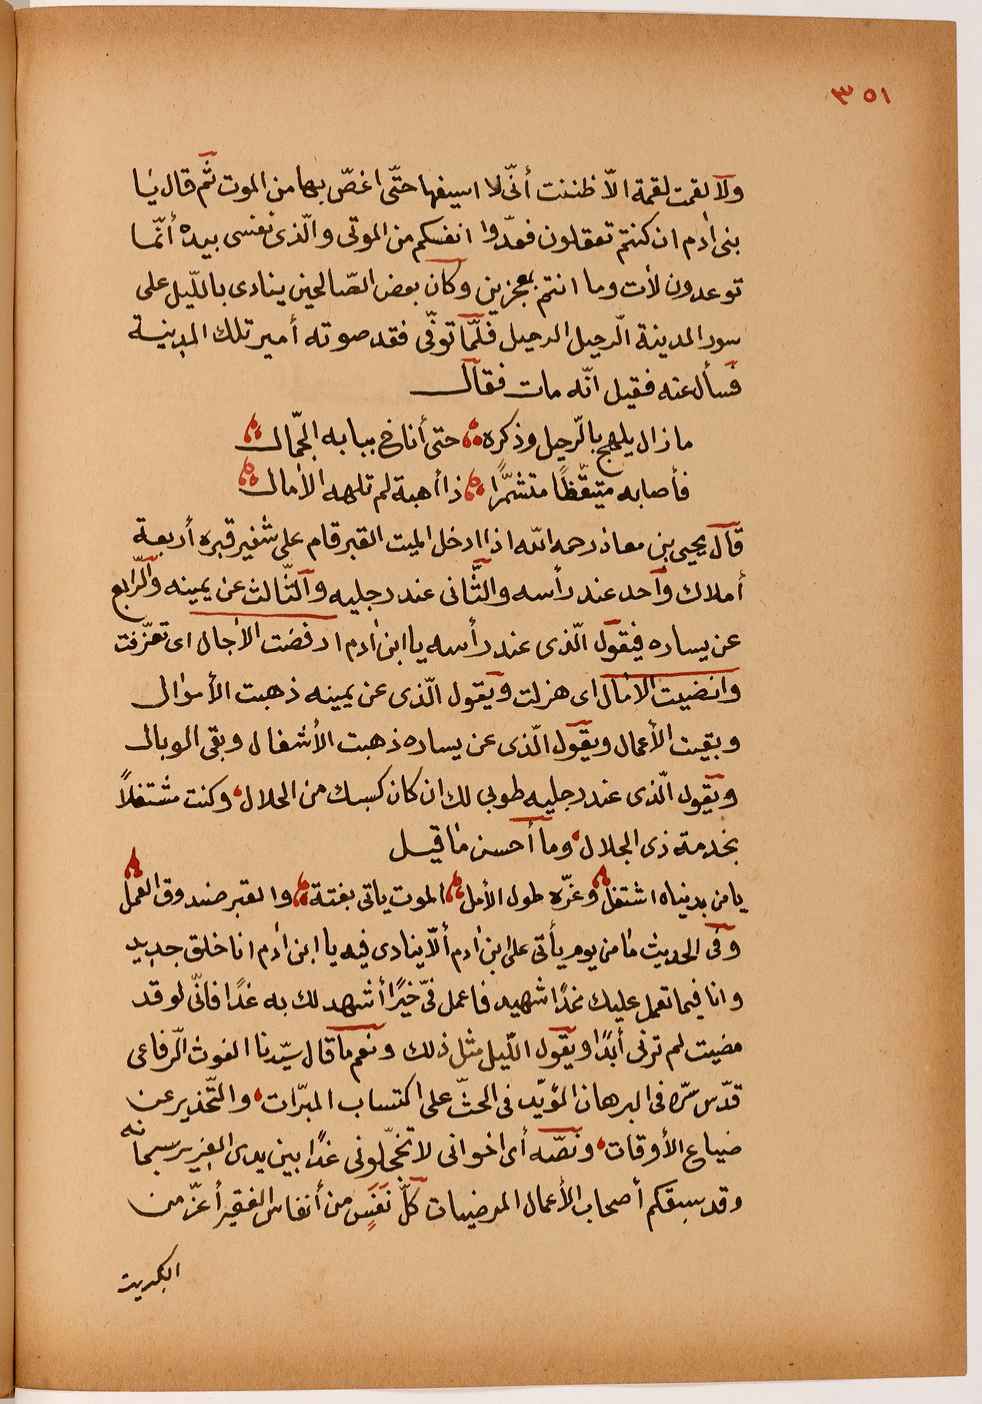 ٣٥١
ولا لقمت لقمة الّا ظننت أنّى لا اسيغها حتّى اغصّ بها من الموت ثم قال يا
بنى اٰدم ان كنتم تعقلون فعدّوا انفسكم من الموتى والّذى نفسى بيده أنّما
توعدون لاٰت وما انتم بمعجزين وكان بعض الصّالحين ينادى بالليّل على
سور المدينة الّرحيل الرحيل فلمّا توفّى فقد صوته أمير تلك المدينة
فسأل عنه فقيل انّه مات فقال
ما زال يلهج بالّرحيل وذكره حتى أناخ ببابه الجّمال
فأصابه متيقّظًا متشمّرًا ذا أهبة لم تلهه الاٰمال
قال يحيى بن معاذ رحمه الله اذا ادخل الميت القبر قام على شفير قبره أربعة
أملاك واحد عند رأسه والثّانى عند رجليه والثّالث عن يمينه والّرابع
عن يساره فيقول الّذى عند رأسه يا ابن اٰدم ارفضت الاٰجال اى تعزّفت
وانضيت الاٰمال اى هزلت ويقول الّذى عن يمينه ذهبت الأموال
وبقيت الأعمال ويقول الّذى عن يساره ذهبت الأشغال وبقى الوبال
ويقول الّذى عند رجليه طوبى لك ان كان كسبك من الحلال وكنت مشتغلاً
بخدمة ذى الجلال وما أحسن ما قيل
يا من بدنياه اشتغل وغرّه طول الأمل الموت ياتى بغتة والقبر صندوق العمل
وفى الحديث ما من يوم يأتى على ابن اٰدم ألّا ينادى فيه يا ابن اٰدم انا خلق جديد
وانا فيما تعمل عليك غدًا شهيد فاعمل فىّ خيرًا أشهد لك به غدًا فانّى لو قد
مضيت لم ترنى أبدًا ويقول اللّيل مثل ذلك ونعم ما قال سيّدنا الغوث الّرفاعى
قدّس سرّه فى البرهان المؤيّد فى الحثّ على اكتساب المبرّات والتّحذير عن
ضياع الأوقات ونصّه أى اخوانى لا تخجّلونى غدًا بين يدى العزيز سبحانه
وقد سبقكم أصحاب الأعمال المرضيات كلّ نفَسٍ من أنفاس الفقير أعزّ من
الكبريت